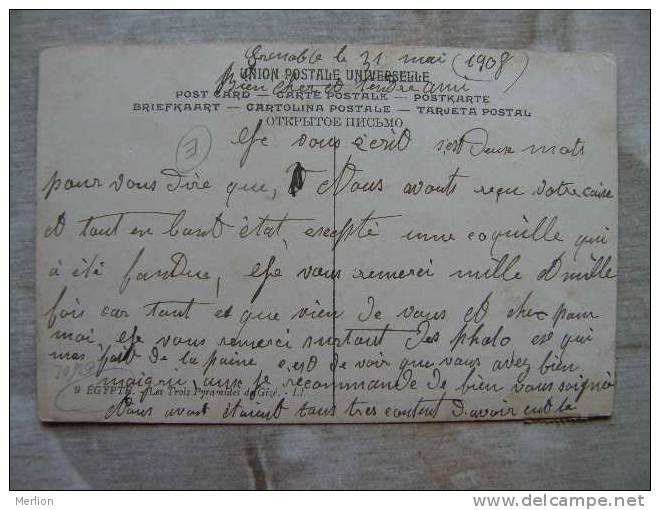 Grenoble le 31 mai (1908)
UNION POSTALE UNIVERSELLE
Bien cher et tendre ami
POST CARD — CARTE POSTALE — POSTKARTE
BRIEFKAART — CARTOLINA POSTALE — TARJETA POSTAL
ОТКРЫТОЕ ПИСЬМО
Je vous ecrit ses deux mots
pour vous dire que, Nous avont reçu votre caise
et tout en baut état excepté une coquille qui
à été fandue, Je vous remerci mille et mille
fois car tout ce que vien de vous et cher pour
moi, Je vous remerci surtout des photo ce qui
mas fait de la paine c'est de voir que vous avez bien
maigri, ausi je recommande de bien vous soignié
9 EGYPTE. - Les Trois Pyramides de Gizé. - LL
Nous avont étaent tous tres content d'avoir
Merlion
www.delcampe.net